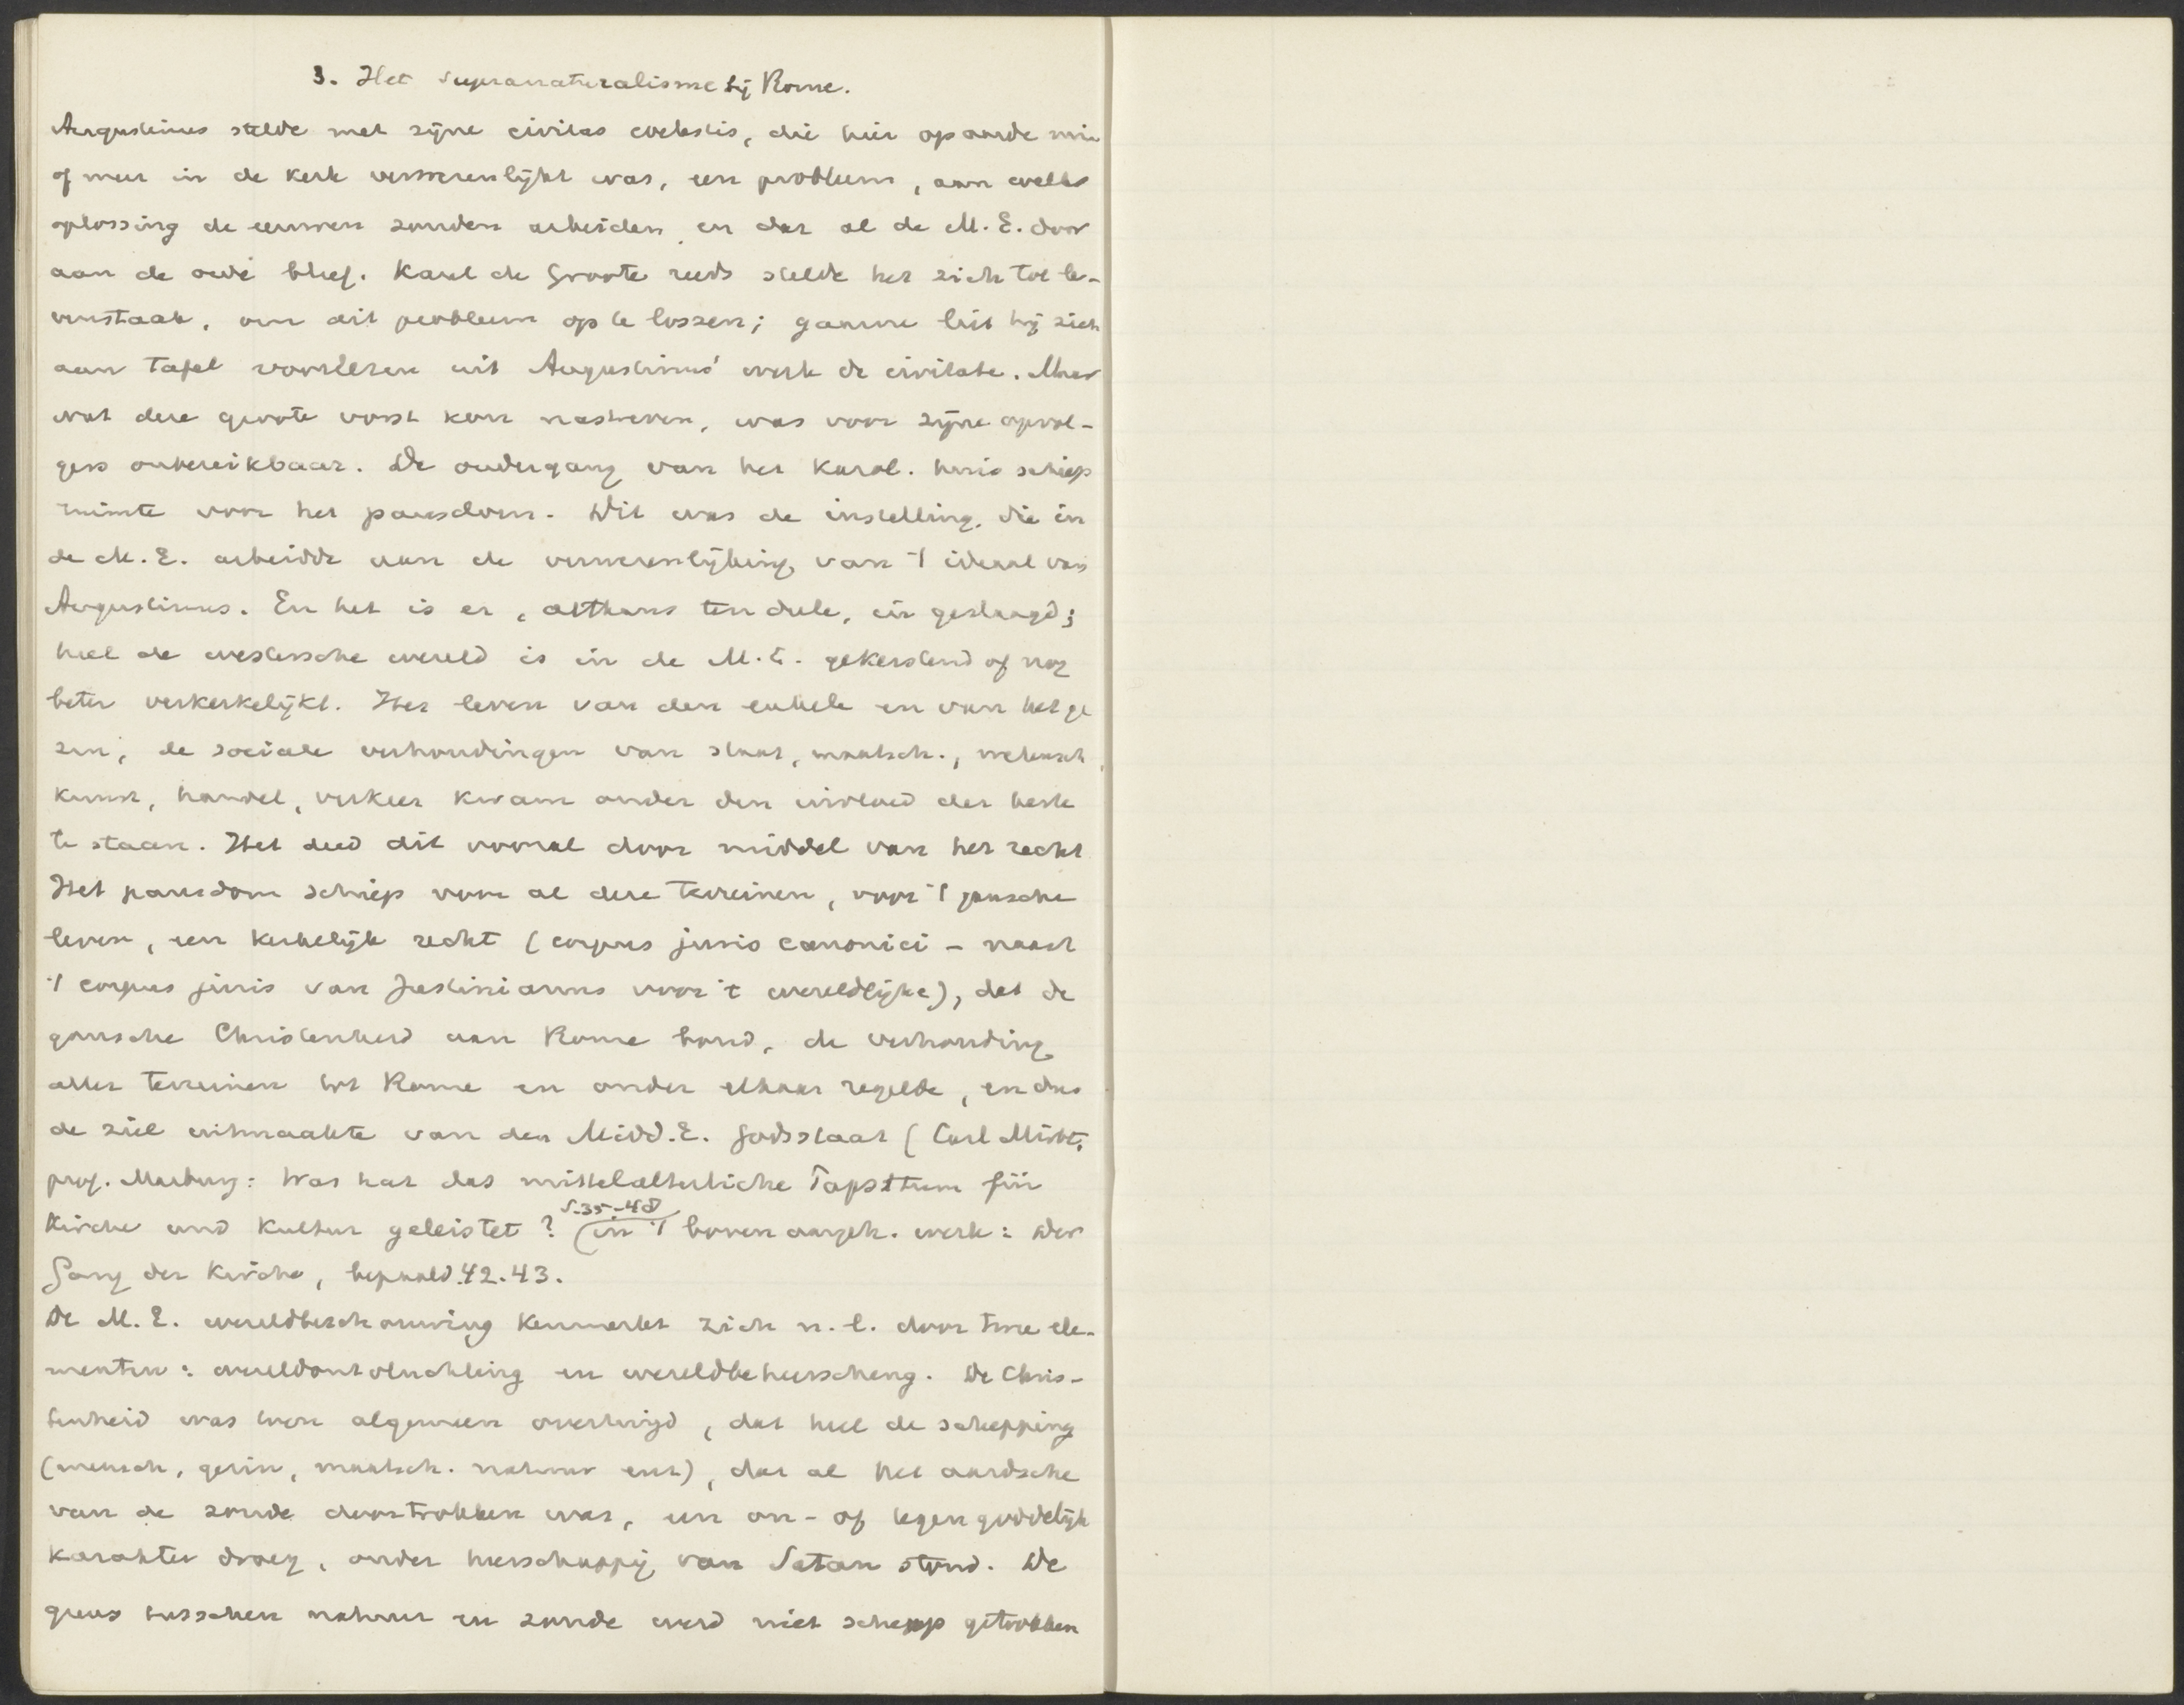 3. Het supranaturalisme bij Rome.
Augustinus stelde met zijne civitas coelestis, die hier op aarde min
of meer in de kerk verwerenlijkt was, een probleem, aan welks
oplossing de eeuwen zouden arbeiden en dat al de M.E. door
aan de orde bleef. Karel de Groote reeds stelde het zich tot le-
venstaak, om dit probleem op te lossen; gaarne liet hij zich
aan tafel voorlezen uit Augustinus' werk de civitate. Maar
wat deze groote vorst kon nastreven, was voor zijne opvol-
gers onbereikbaar. De ondergang van het Karol. huis schiep
ruimte voor het pausdom. Dit was de instelling, die in
de M.E. arbeidde aan de verwerenlijking van 't ideaal van
Augustinus. En het is er, althans ten deele, in geslaagd;
heel de westersche wereld is in de M.E. gekerstend of nog
beter verkerkelijkt. Het leven van den enkele en van het ge
zin, de sociale verhoudingen van staat, maatsch., wetensch,
kunst, handel, verkeer kwam onder den invloed der kerk
te staan. Het deed dit vooral door middel van het recht
Het pausdom schiep voor al deze terreinen, voor 't gansche
leven, een kerkelijk recht (corpus juris canonici – naast
't corpus juris van Justinianus voor 't wereldlijke), dat de
gansche Christenheid aan Rome bond, de verhouding
aller terreinen tot Rome en onder elkaar regelde, en dus
de ziel uitmaakte van den Midd.E. Godsstaat (Carl Mirbt,
prof. Marburg: Was hat das mittelalterliche Papsttum für
Kirche und Kultur geleistet? S.35-48 (in 't boven aangeh. werk: Der
Gang der Kirche, bepaald 42.43.
De M.E. wereldbeschouwing kenmerkt zich n.l. door twee ele-
menten: wereldontvluchting en wereldbeheersching. De Chris-
tenheid was toen algemeen overtuigd, dat heel de schepping
(mensch, gezin, maatsch. natuur enz), dat al het aardsche
van de zonde doortrokken was, een on- of tegengoddelijk
karakter droeg, onder heerschappij van Satan stond. De
grens tusschen natuur en zonde werd niet scherp getrokken